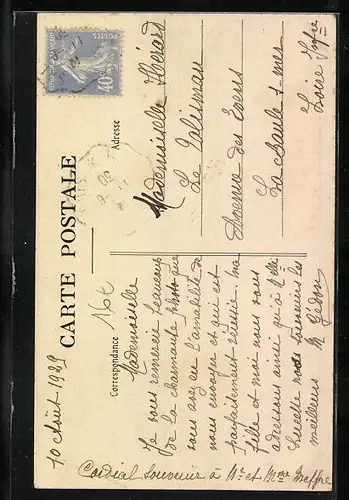 CARTE POSTALE
Correspondance
Adresse
RÉPUBLIQUE FRANÇAISE
POSTES
40c
10 Août 1929
16t
Mademoiselle
Je vous remercie beaucoup
de la charmante photo que
vous avez eu l'amabilité de
nous envoyer et qui est
parfaitement réussie. Ma
fille et moi nous vous
adressons ainsi qu'à Melle
Lucette nos souvenirs les
meilleurs M Gedon
Cordial souvenir à Mr et Mme Meffre
Mademoiselle Hérard
Le Talisman
Avenue des Evens
La Baule s/ mer
Loire Infre